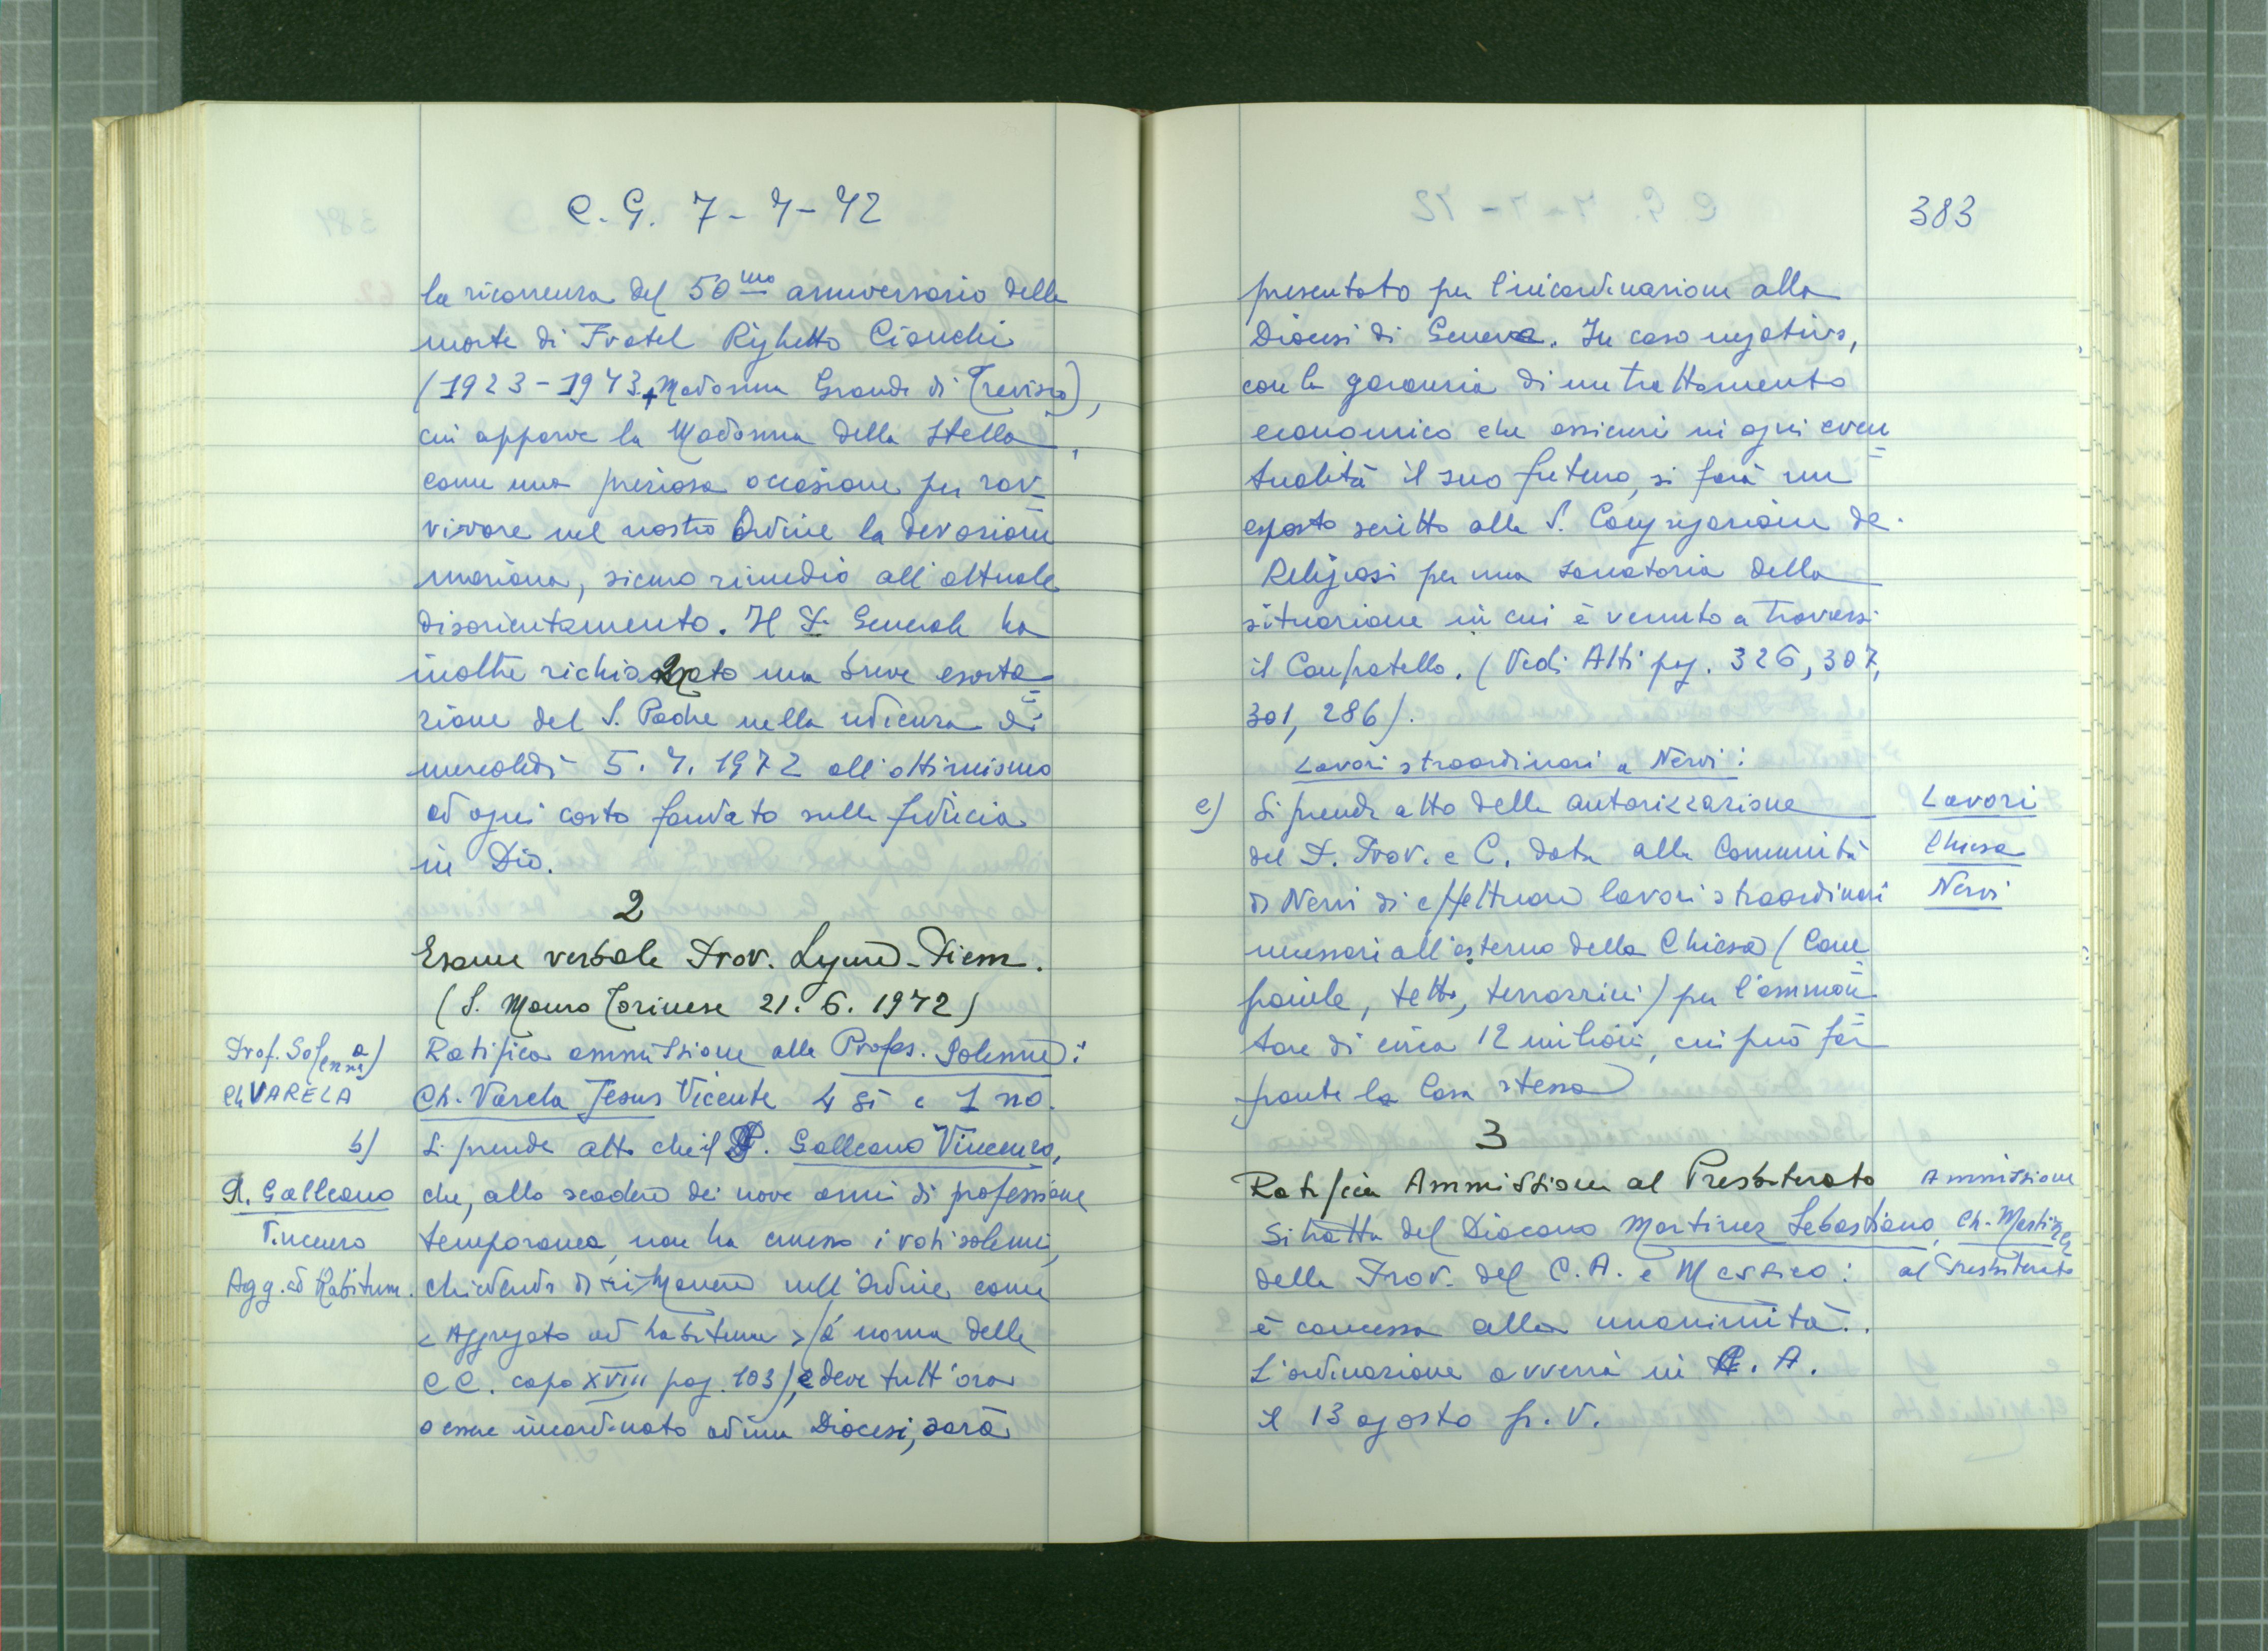 C. G. 7-7-72
la ricorrenza del 50mo anniversario della
morte di Fratel Righetto Cionchi
(1923-1973 + Madonna Grande di Treviso),
cui apparve la Madonna della Stella,
come una preziosa occasione per rav=
vivare nel nostro Ordine la devozione
mariana, sicuro rimedio all'attuale
disorientamento. Il P. Generale ha
inoltre richiamato una breve esorta=
zione del S. Padre nella udienza di
mercoledì 5.7.1972 all'ottimismo
ad ogni costo fondato sulla fiducia
in Dio.
2
Esame verbale Prov. Ligure-Piem.
(S. Mauro Torinese 21.6.1972)
Prof. Solenne a)
Ch VARELA
Ratifica ammissione alla Profes. Solenne:
Ch. Varela Jesus Vicente 4 sì e 1 no.
b)
Si prende atto che il P. Galleano Vincenzo,
P. Galleano
Vincenzo
Agg. ad Habitum.
che, allo scadere dei nove anni di professione
temporanea, non ha emesso i voti solenni,
chiedendo di rimanere nell'Ordine come
< Aggregato ad habitum > (a norma delle
CC. capo XVIII pag. 103), e deve tutt'ora
essere incardinato ad una Diocesi, sarà
383
presentato per l'incardinazione alla
Diocesi di Genova. In caso negativo,
con la garanzia di un trattamento
economico che assicuri in ogni even=
tualità il suo futuro, si farà un
esposto scritto alla S. Congregazione de.
Religiosi per una sanatoria della
situazione in cui è venuto a trovarsi
il Confratello. (Vedi Atti pag. 326, 307,
301, 286).
Lavori straordinari a Nervi:
c) Si prende atto della autorizzazione
del P. Prov. e C. data alla Comunità
di Nervi di effettuare lavori straordinari
necessari all'esterno della Chiesa (Cam=
panile, tetto, terrazzini) per l'ammon=
tare di circa 12 milioni, cui può far
fronte la Casa stessa
Lavori
Chiesa
Nervi
3
Ratifica Ammissione al Presbiterato
Si tratta del Diacono Martinez Sebastiano,
della Prov. del C.A. e Messico:
è concessa alla unanimità.
L'ordinazione avverrà in C. A.
il 13 agosto p. v.
Ammissione
Ch. Martinez
al Presbiterato